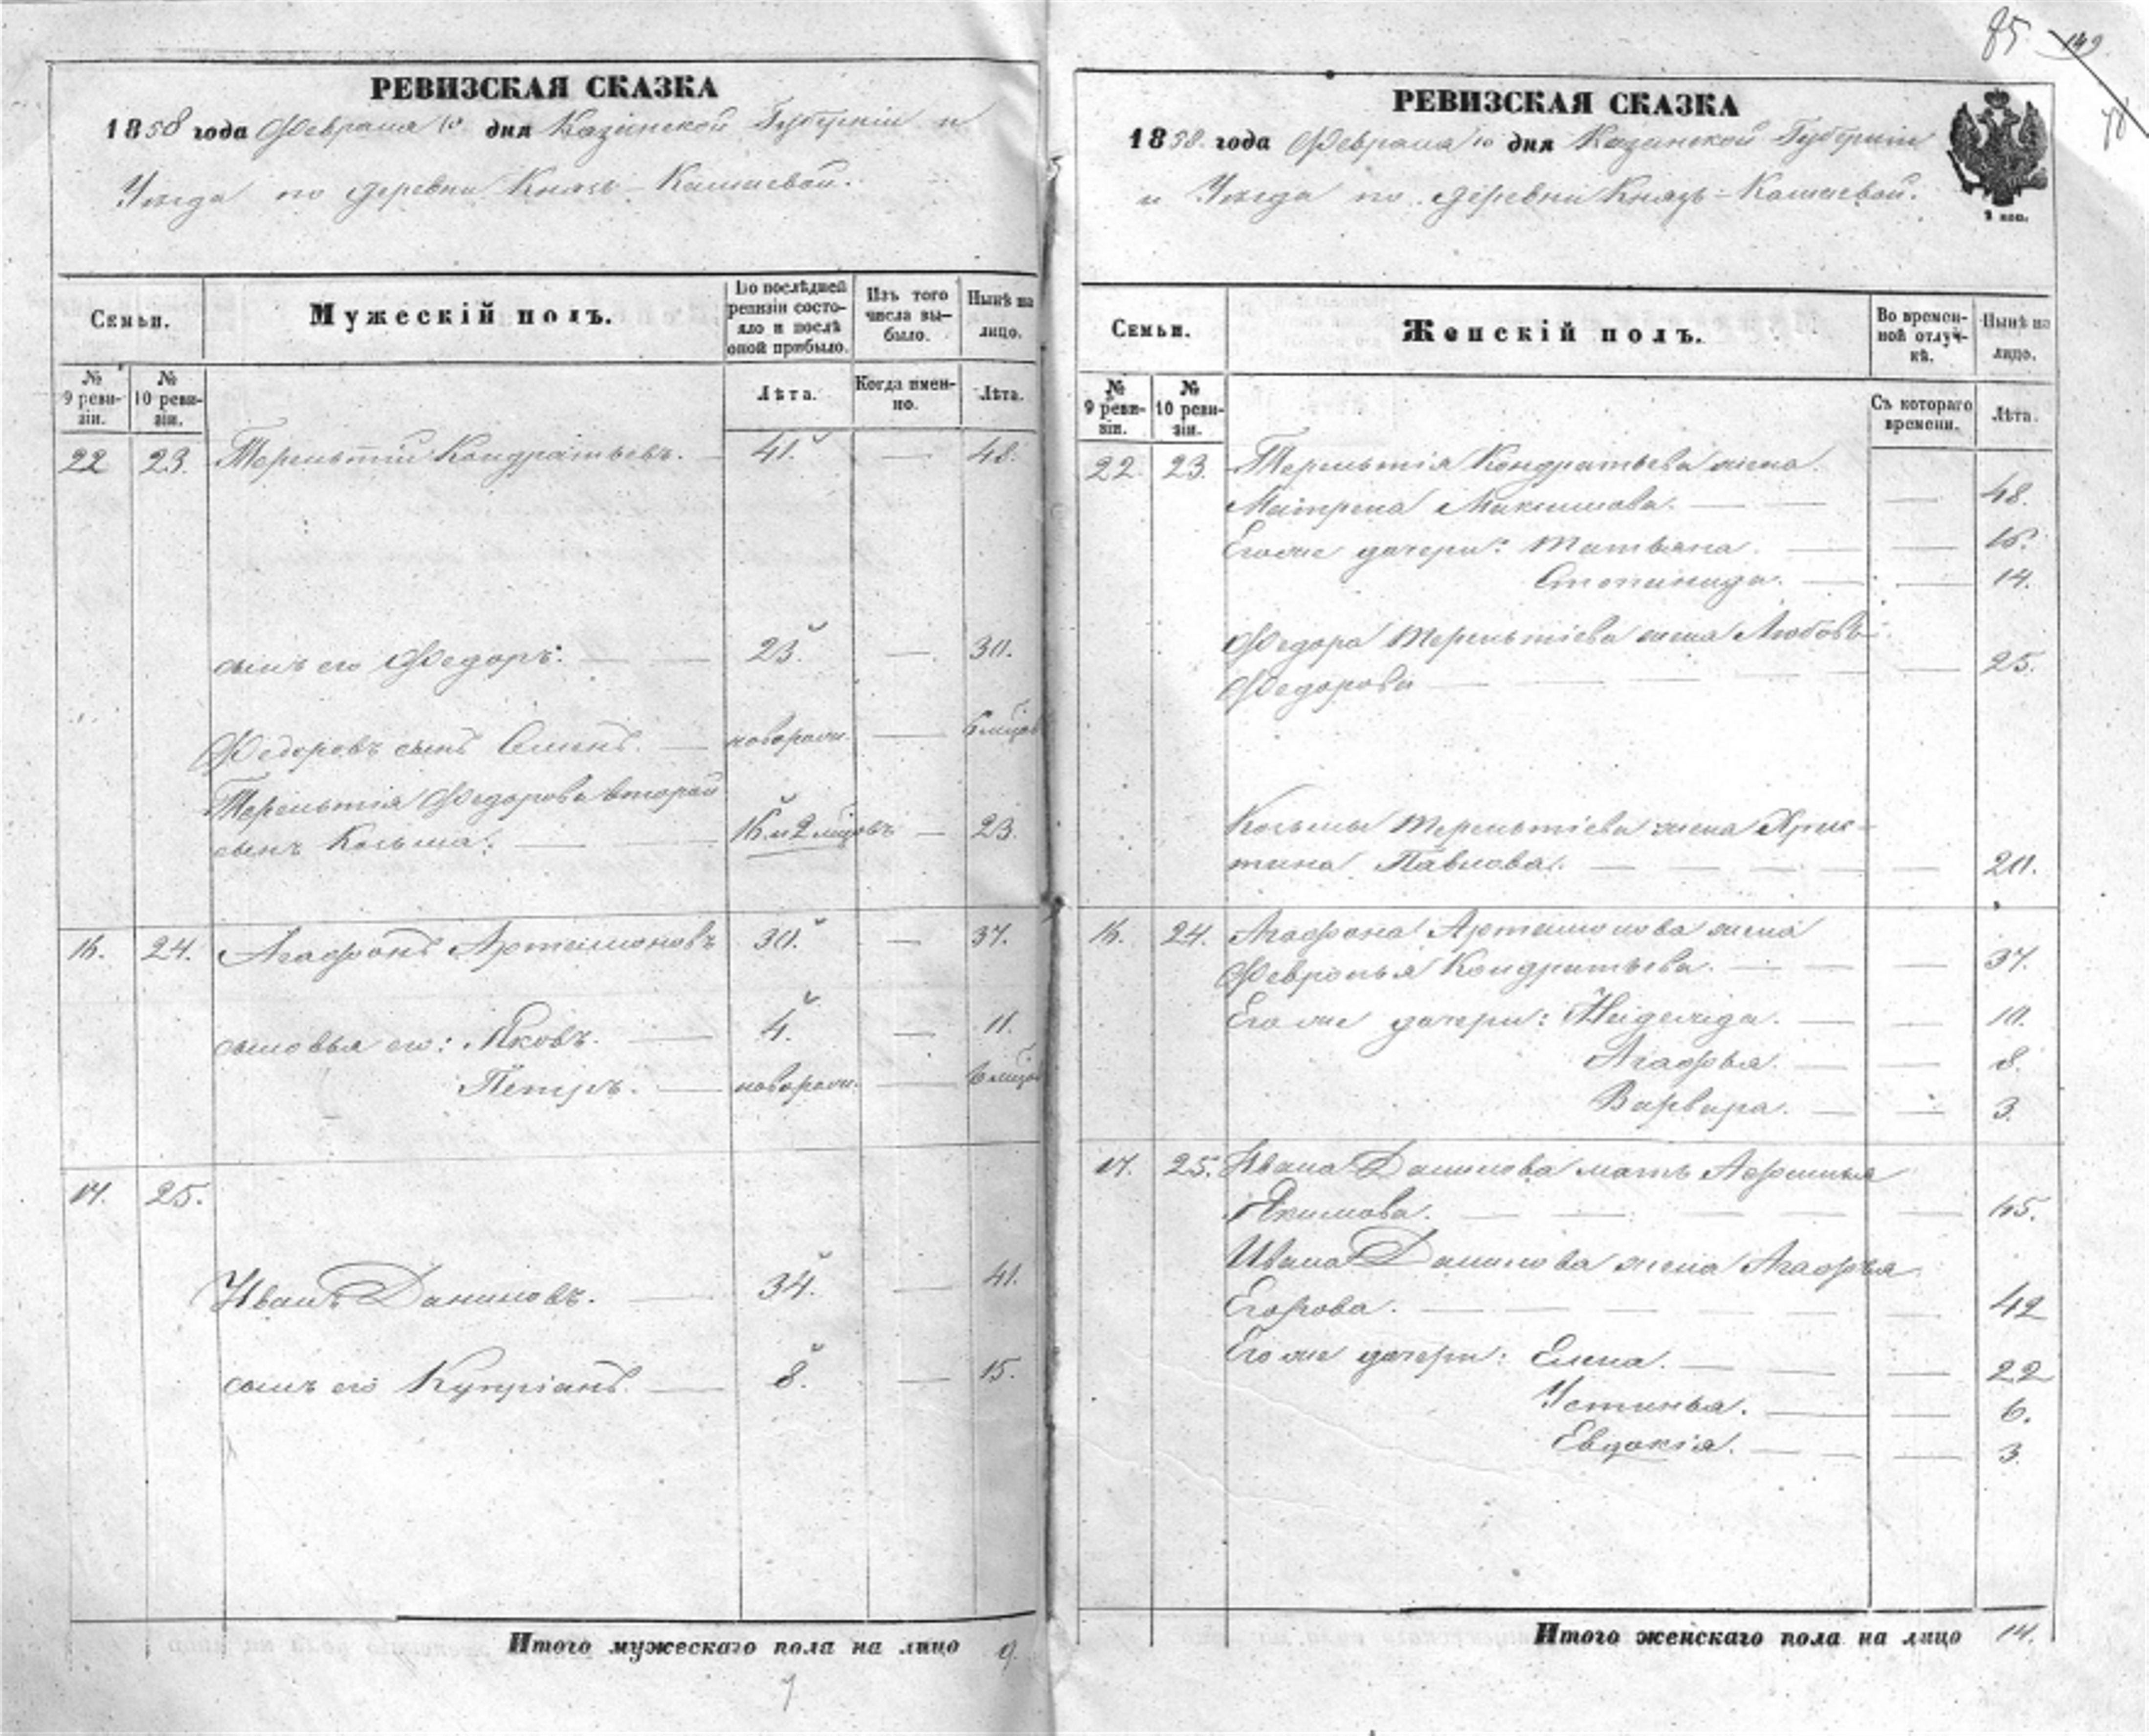 РЕВИЗСКАЯ СКАЗКА
1858 года Февраля 10 дня Казанской Губерніи и
Уезда по деревни Князь-Камаевой.
Семьи.
Мужескій полъ.
По послѣдней ревизіи состояло и послѣ оной прибыло.
Изъ того числа выбыло.
Нынѣ на лицо.
№ 9 ревизіи.
№ 10 ревизіи.
Лѣта.
Когда именно.
Лѣта.
22 23. Терентій Кондратьевъ. 41. — 48.
сынъ его Федоръ. — 23. — 30.
Федоровъ сынъ Семенъ. — новорожд. — 6 мцовъ
Терентія Федорова второй
сынъ Козьма. — 16. и 2 мцовъ — 23.
16. 24. Агафонъ Артамоновъ 30. — 37.
сыновья его: Яковъ. — 4. — 11.
Петръ. — новорожд. — 6 мцовъ
17. 25.
Иванъ Даниловъ. — 34. — 41.
сынъ его Купріянъ. — 8. — 15.
Итого мужескаго пола на лицо 9.
7
85 149
РЕВИЗСКАЯ СКАЗКА
1858. года Февраля 10 дня Казанской Губерніи
и Уезда по деревни Князь-Камаевой.
Семьи.
Женскій полъ.
Во временной отлучкѣ.
Нынѣ на лицо.
№ 9 ревизіи.
№ 10 ревизіи.
Съ котораго времени.
Лѣта.
22. 23. Терентія Кондратьева жена
Матрена Максимова. — — 48.
Егоже дочери: Татьяна. — — 16.
Степанида. — — 14.
Федора Терентіева жена Любовь
Федорова — — 25.
Козьмы Терентіева жена Хрис-
тина Павлова. — — 20.
16. 24. Агафона Артамонова жена
Февронья Кондратьева. — — 37.
Его же дочери: — — 10.
Агафья. — — 8.
Варвара. — — 3.
17. 25. Ивана Данилова мать Афимья
Якимова. — — 65.
Ивана Данилова жена Агафья
Егорова. — — 42
Его же дочери: Елена. — — 22
Устинья. — — 6.
Евдокія. — — 3.
Итого женскаго пола на лицо 14.